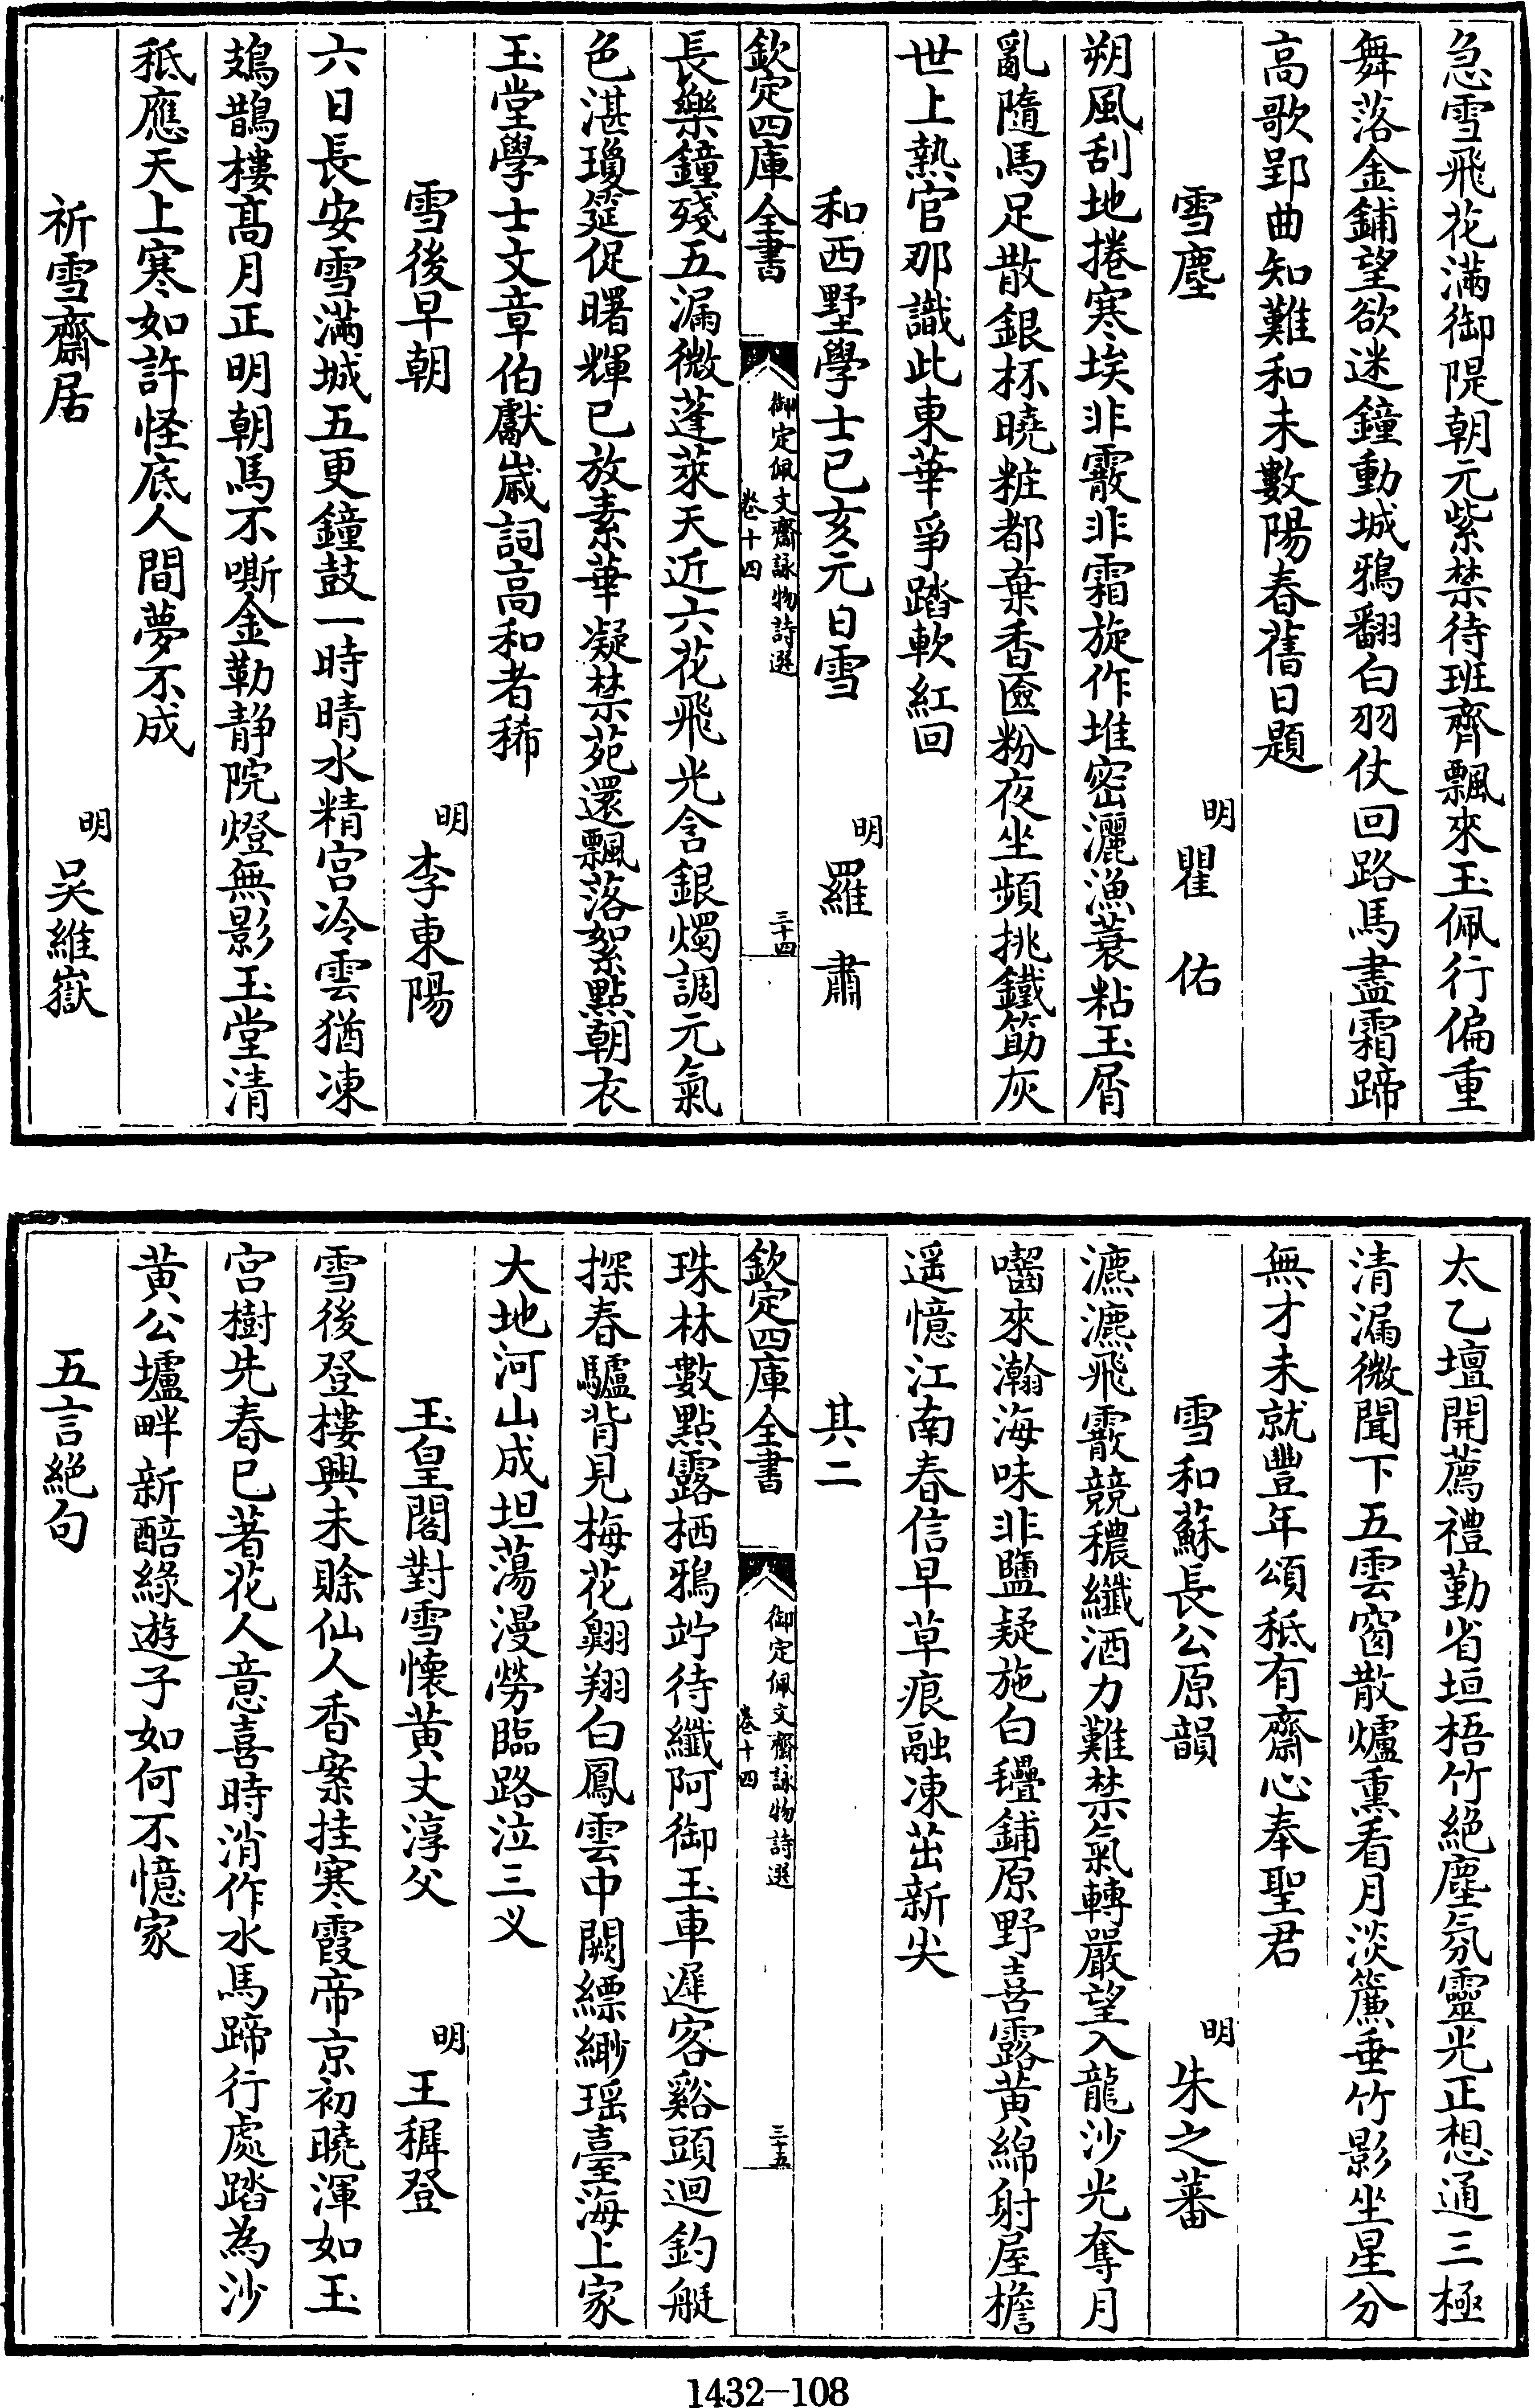 急雪飛花滿御隄朝元紫禁待班齊飄來玉佩行偏重
舞落金鋪望欲迷鐘動城鴉翻白羽仗回路馬盡霜蹄
高歌郢曲知難和未數陽春舊日題
雪塵 明 瞿佑
朔風刮地捲寒埃非霰非霜旋作堆密灑漁蓑粘玉屑
亂隨馬足散銀杯曉粧都棄香匳粉夜坐頻挑鐵筯灰
世上熱官那識此東華爭踏軟紅回
和西野學士已亥元日雪 明 羅肅
欽定四庫全書 御定佩文齋詠物詩選 卷十四 三十四
長樂鐘殘五漏微蓬萊天近六花飛光含銀燭調元氣
色湛瓊筵促曙輝已放素華凝禁苑還飄落絮點朝衣
玉堂學士文章伯獻歲詞高和者稀
雪後早朝 明 李東陽
六日長安雪滿城五更鐘鼓一時晴水精宮冷雲猶凍
鳷鵲樓高月正明朝馬不嘶金勒靜院燈無影玉堂清
秪應天上寒如許怪底人間夢不成
祈雪齋居 明 吳維嶽
太乙壇開薦禮勤省垣梧竹絕塵氛靈光正想通三極
清漏微聞下五雲窗散爐熏看月淡簾垂竹影坐星分
無才未就豐年頌秪有齋心奉聖君
雪和蘇長公原韻 明 朱之蕃
瀌瀌飛霰競穠纖酒力難禁氣轉嚴望入龍沙光奪月
囓來瀚海味非鹽疑施白㲲鋪原野喜露黃綿射屋檐
遥憶江南春信早草痕融凍茁新尖
其二
欽定四庫全書 御定佩文齋詠物詩選 卷十四 三十五
珠林數點露栖鴉竚待纖阿御玉車遲客谿頭迴釣艇
探春驢背見梅花翺翔白鳳雲中闕縹緲瑶臺海上家
大地河山成坦蕩漫勞臨路泣三叉
玉皇閣對雪懷黃丈淳父 明 王穉登
雪後登樓興未賖仙人香案挂寒霞帝京初曉渾如玉
宮樹先春已著花人意喜時消作水馬蹄行處踏為沙
黃公壚畔新醅綠遊子如何不憶家
五言絕句
1432-108